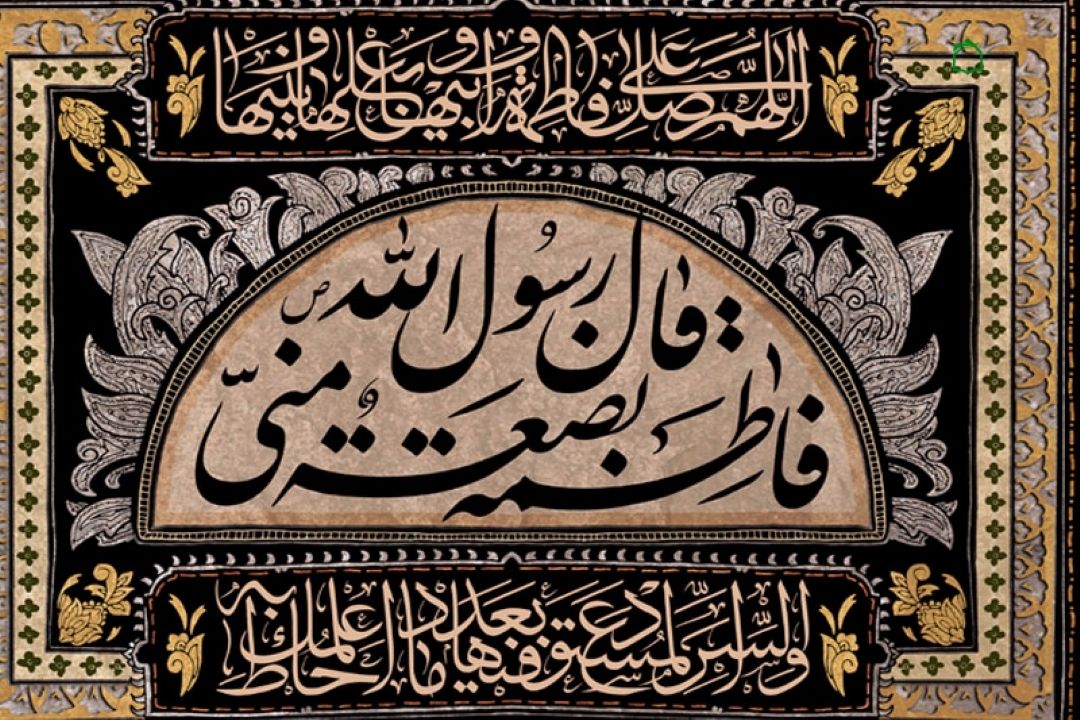 اللهم صل على فاطمة و ابيها و بعلها و بنيها
قال رسول الله ص
فاطمة بضعة منی
و السر المستودع فیها بعدد ما احاط به علمك